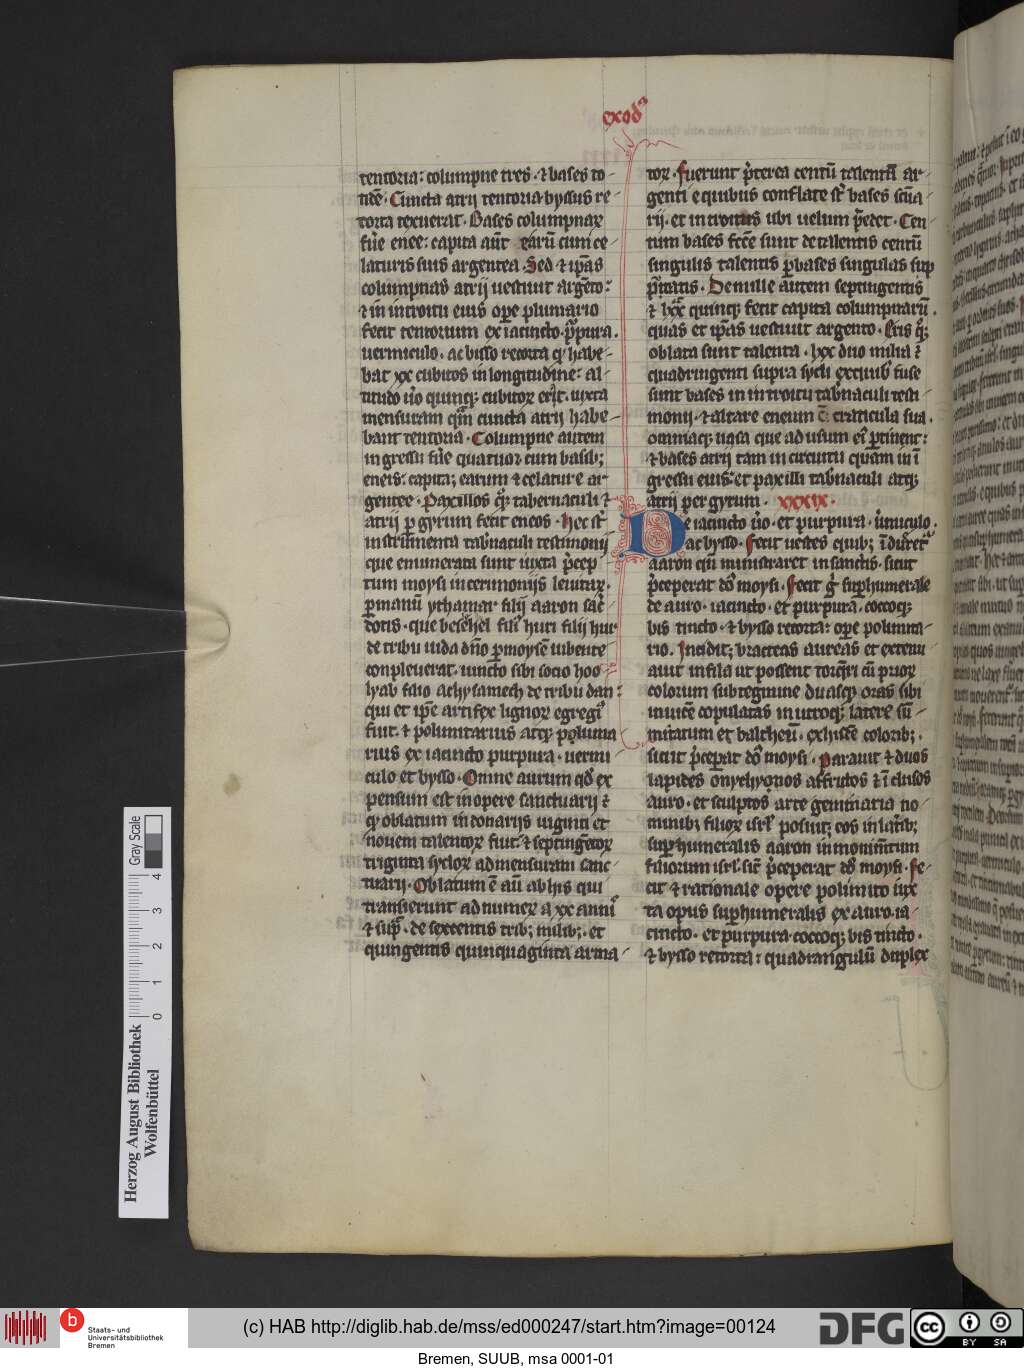 exodꝰ
tentoria: columpne tres · ⁊ bases to-
tidē · Cuncta atrij tentoria byssus re-
torta texuerat · Bases columpnaꝝ
fūe enee: capita aūt earū cum ce-
laturis suis argentea · Sed ⁊ ip̄as
columpnas atrij uestiuit argēto:
⁊ in introitu eius oꝑe plumario
fecit tentorium ex iacincto · pᵉpura ·
uermiculo · ac bisso retorta qᵈ habe-
bat xx cubitos in longitudine: al-
titudo uͦo quinqꝫ cubitoꝝ erat · iuxta
mensuram quā cuncta atrij habe-
bant tentoria · Columpne autem
ingressu fūe quatuor cum basibꝫ
eneis: capitaqꝫ earum ⁊ celature ar-
gentee · Paxillos qͦꝫ tabernaculi ⁊
atrij ꝑ gyrum fecit eneos · Hec sūt
instrumenta tab̄naculi testimonij
que enumerata sunt iuxta p̄cep-
tum moysi in cerimonijs leuitaꝝ ·
ꝑ manū ythamar filij aaron sac̄-
dotis · que beselehel filiꝰ huri filij hur
de tribu iuda dn̄o ꝑ moysē iubente
conpleuerat · iuncto sibi socio hoo-
lyab filio achysamech de tribu dan:
qui et ip̄e artifex lignoꝝ egregiꝰ
fuit · ⁊ polimitarius atqꝫ poluma
rius ex iacincto purpura · uermi
culo et bysso · Omne aurum qd̄ ex
pensum est in opere sanctuarij ⁊
qᵈ oblatum in donarijs uiginti et
nouem talentoꝝ fuit · ⁊ septingētoꝝ
triginta sycloꝝ ad mensuram sanc-
tuarij · Oblatum ē aū ab his qui
transierunt ad numeꝝ a xx annis
⁊ sup̄ · de sexcentis tribꝫ milibꝫ · et
quingentis quinquaginta arma-
toꝝ · fuerunt p̄terea centū talenta ar-
genti e quibus conflate sūt bases scūa-
rij · et introitus ubi uelum p̄det · Cen-
tum bases fc̄e sunt de talentis centū
singulis talentis ꝑ bases singulas sup
putatis · De mille autem septingentis
⁊ lxx quinqꝫ fecit capita columpnarū ·
quas et ip̄as uestiuit argento · Eris qͦꝫ
oblata sunt talenta · lxx duo milia ⁊
quadringenti supra sycli ex quibꝰ fuse
sunt bases in introitu tab̄naculi testi-
monij · ⁊ altare eneum cū craticula sua ·
omniaqꝫ uasa que ad usum eiꝰ ꝑtinent:
⁊ bases atrij tam in circuitu quam in ī
gressu eius: et paxilli tab̄naculi atqꝫ
atrij per gyrum · xxxix ·
De iacincto uͦo · et purpura · uͥmiculo ·
ac bysso · fecit uestes quibꝫ īduret̄
aaron cū ministraret in sanctis · sicut
p̄ceperat dn̄s moysi · Fecit gͥ suꝑhumerale
de auro · iacincto · et purpura · coccoqꝫ
bis tincto · ⁊ bysso retorta: opere polimita-
rio · Inciditqꝫ bracteas aureas et extenu-
auit in fila ut possent torqͥri cū prioꝝ
colorum subtegmine duasqꝫ oras sibi
inuicē copulatas in utroqꝫ latere sū-
mitatum et baltheū · ex hisdē coloribꝫ ·
sicut p̄ceperat dn̄s moysi · Parauit ⁊ duos
lapides onychynos astrictos ⁊ ī clusos
auro · et sculptos arte gemmaria no-
minibꝫ filioꝝ isrl̄ · posuitqꝫ eos in lat̄ibꝫ
suꝑhumeralis aaron in monimētum
filiorum isrl̄ · sic̄ p̄ceperat dn̄s moysi · Fe-
cit ⁊ rationale opere polimito iux
ta opus suꝑhumeralis ex auro · ia-
cincto · et purpura · coccoqꝫ bis tincto ·
⁊ bysso retorta: quadrangulū duplex
Herzog August Bibliothek
Wolfenbüttel
Gray Scale
0 1 2 3 4
b
Staats- und
Universitätsbibliothek
Bremen
(c) HAB http://diglib.hab.de/mss/ed000247/start.htm?image=00124
DFG
cc BY SA
Bremen, SUUB, msa 0001-01